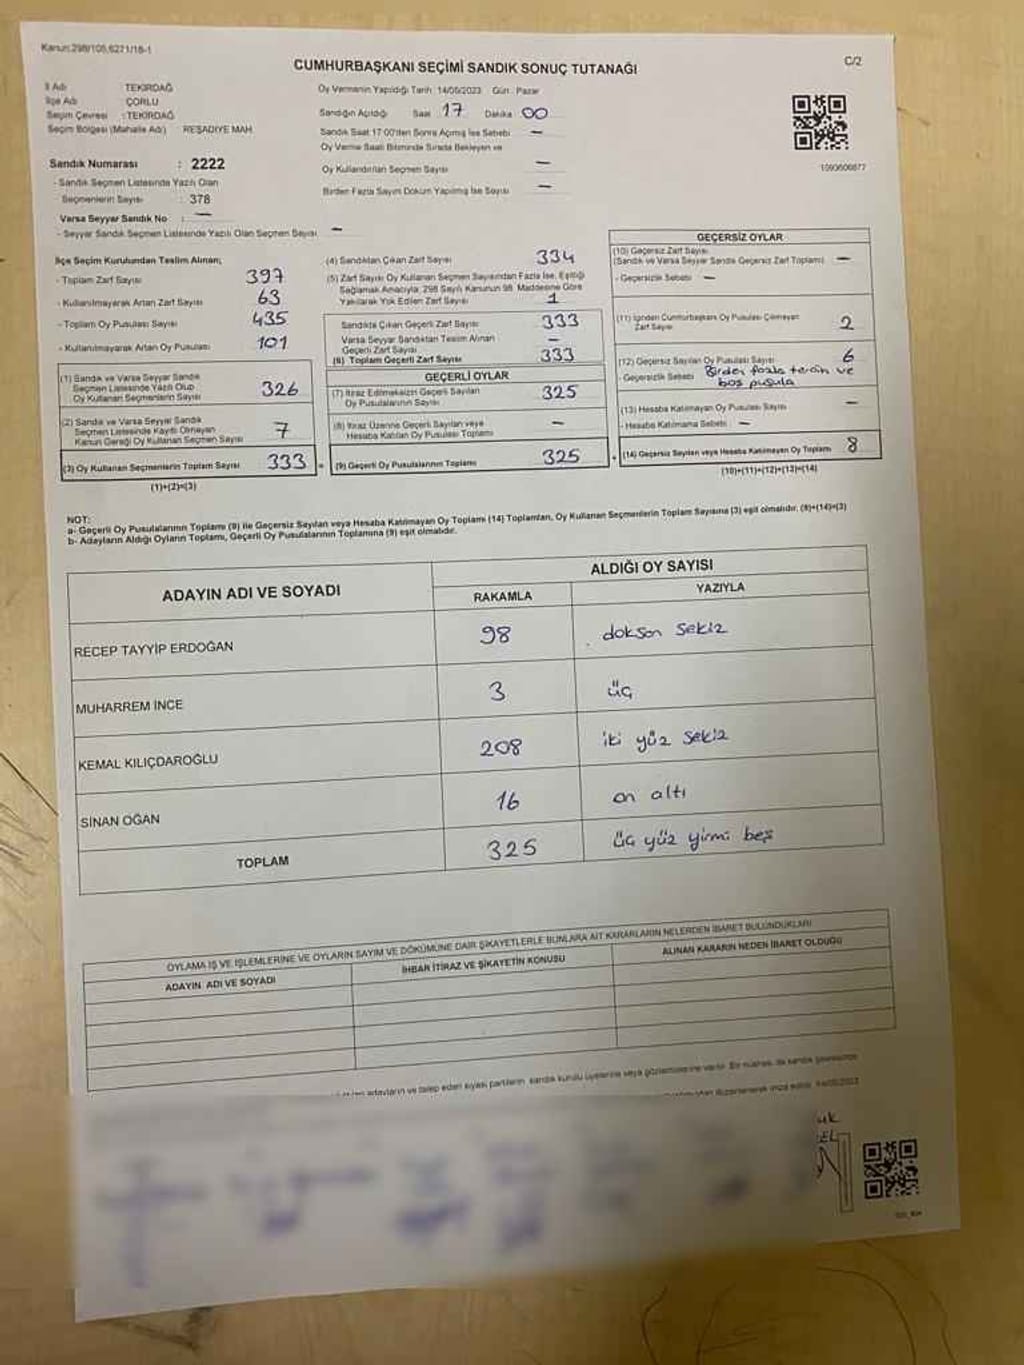 Kanun:298/105,6271/18-1
C/2
CUMHURBAŞKANI SEÇİMİ SANDIK SONUÇ TUTANAĞI
İl Adı TEKİRDAĞ
İlçe Adı ÇORLU
Seçim Çevresi : TEKİRDAĞ
Seçim Bölgesi (Mahalle Adı) REŞADİYE MAH.
Sandık Numarası : 2222
- Sandık Seçmen Listesinde Yazılı Olan
Seçmenlerin Sayısı : 378
Varsa Seyyar Sandık No : —
- Seyyar Sandık Seçmen Listesinde Yazılı Olan Seçmen Sayısı —
Oy Vermenin Yapıldığı Tarih :14/05/2023 Gün : Pazar
Sandığın Açıldığı Saat 17 Dakika 00
Sandık Saat 17:00'den Sonra Açılmış İse Sebebi —
Oy Verme Saati Bitiminde Sırada Bekleyen ve
Oy Kullandırılan Seçmen Sayısı —
Birden Fazla Sayım Döküm Yapılmış İse Sayısı —
1093606877
İlçe Seçim Kurulundan Teslim Alınan;
- Toplam Zarf Sayısı 397
- Kullanılmayarak Artan Zarf Sayısı 63
- Toplam Oy Pusulası Sayısı 435
- Kullanılmayarak Artan Oy Pusulası 101
(1) Sandık ve Varsa Seyyar Sandık
Seçmen Listesinde Yazılı Olup
Oy Kullanan Seçmenlerin Sayısı 326
(2) Sandık ve Varsa Seyyar Sandık
Seçmen Listesinde Kayıtlı Olmayan
Kanun Gereği Oy Kullanan Seçmen Sayısı 7
(3) Oy Kullanan Seçmenlerin Toplam Sayısı 333
(1)+(2)=(3)
(4) Sandıktan Çıkan Zarf Sayısı 334
(5) Zarf Sayısı Oy Kullanan Seçmen Sayısından Fazla İse, Eşitliği
Sağlamak Amacıyla; 298 Sayılı Kanunun 98. Maddesine Göre
Yakılarak Yok Edilen Zarf Sayısı 1
Sandıkta Çıkan Geçerli Zarf Sayısı 333
Varsa Seyyar Sandıktan Teslim Alınan
Geçerli Zarf Sayısı —
(6) Toplam Geçerli Zarf Sayısı 333
GEÇERLİ OYLAR
(7) İtiraz Edilmeksizin Geçerli Sayılan
Oy Pusulalarının Sayısı 325
(8) İtiraz Üzerine Geçerli Sayılan veya
Hesaba Katılan Oy Pusulası Toplamı —
= (9) Geçerli Oy Pusulalarının Toplamı 325
GEÇERSİZ OYLAR
(10) Geçersiz Zarf Sayısı
(Sandık ve Varsa Seyyar Sandık Geçersiz Zarf Toplamı) —
- Geçersizlik Sebebi —
(11) İçinden Cumhurbaşkanı Oy Pusulası Çıkmayan
Zarf Sayısı 2
(12) Geçersiz Sayılan Oy Pusulası Sayısı 6
- Geçersizlik Sebebi Birden fazla tercih ve
boş pusula
(13) Hesaba Katılmayan Oy Pusulası Sayısı —
- Hesaba Katılmama Sebebi —
+ (14) Geçersiz Sayılan veya Hesaba Katılmayan Oy Toplamı 8
(10)+(11)+(12)+(13)=(14)
NOT:
a- Geçerli Oy Pusulalarının Toplamı (9) ile Geçersiz Sayılan veya Hesaba Katılmayan Oy Toplamı (14) Toplamları, Oy Kullanan Seçmenlerin Toplam Sayısına (3) eşit olmalıdır. (9)+(14)=(3)
b- Adayların Aldığı Oyların Toplamı, Geçerli Oy Pusulalarının Toplamına (9) eşit olmalıdır.
ADAYIN ADI VE SOYADI
ALDIĞI OY SAYISI
RAKAMLA YAZIYLA
RECEP TAYYİP ERDOĞAN 98 doksan sekiz
MUHARREM İNCE 3 üç
KEMAL KILIÇDAROĞLU 208 iki yüz sekiz
SİNAN OĞAN 16 on altı
TOPLAM 325 üç yüz yirmi beş
OYLAMA İŞ VE İŞLEMLERİNE VE OYLARIN SAYIM VE DÖKÜMÜNE DAİR ŞİKAYETLERLE BUNLARA AİT KARARLARIN NELERDEN İBARET BULUNDUKLARI
ADAYIN ADI VE SOYADI İHBAR İTİRAZ VE ŞİKAYETİN KONUSU ALINAN KARARIN NEDEN İBARET OLDUĞU
adayların ve talep eden siyasi partilerin sandık kurulu üyelerine veya gözlemcilerine verilir. Bir nüshası da sandık
düzenlenerek imza edildi.